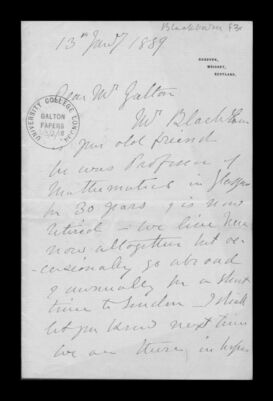 Blackburn f3r
13th Jany 1889
ROSHVEN,
SCOTLAND.
Dear Mr Galton
Mr Blackburn
is your old friend
he was Professor of
Mathematics in Glasgow
for 30 years & is now
retired - we live here
now altogether but oc
-casionally go abroad
& annually for a short
time to London - I shall
let you know next time
we are there, in hopes
UNIVERSITY COLLEGE LONDON
GALTON
PAPERS